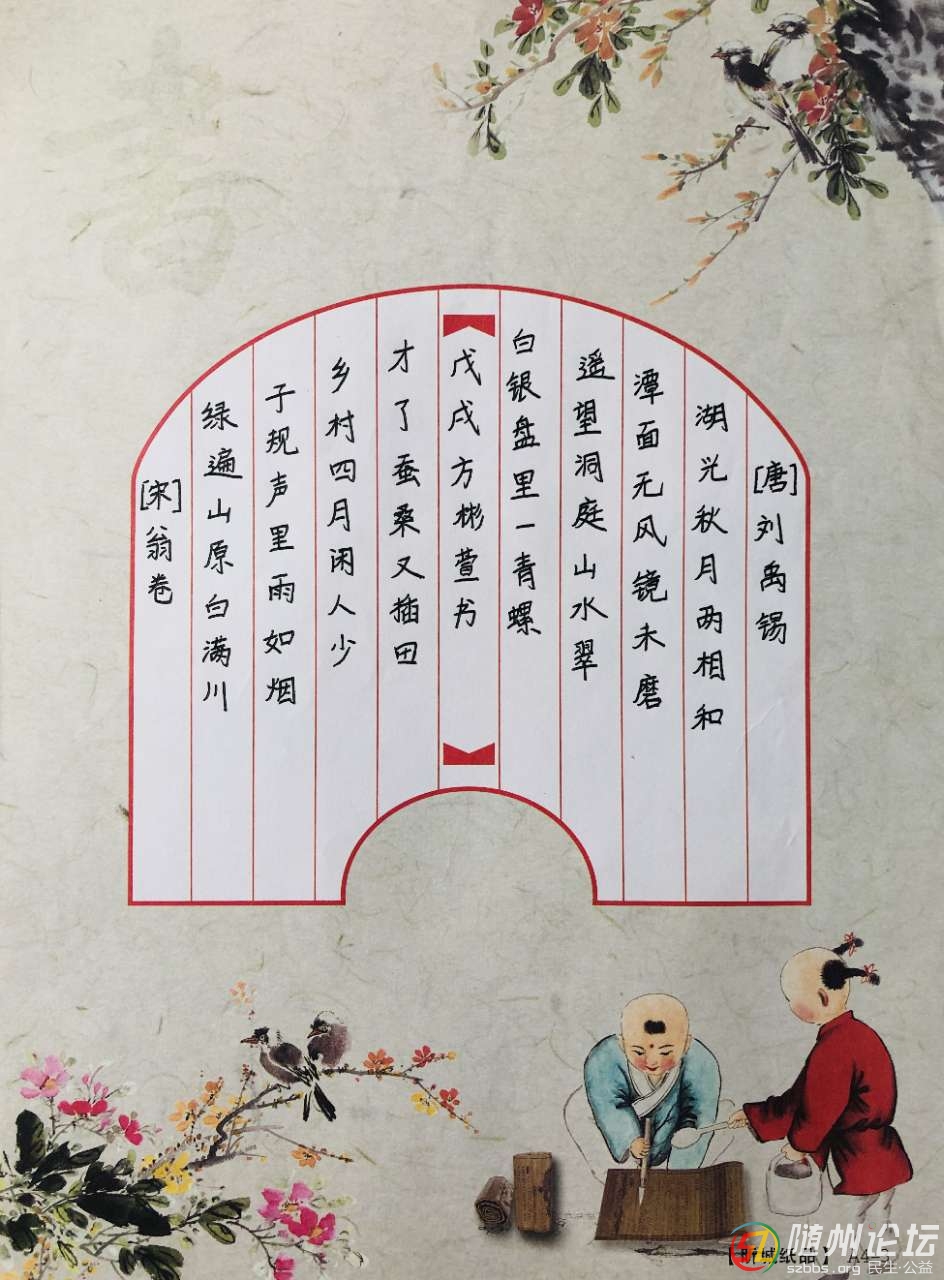 [唐]刘禹锡
湖光秋月两相和
潭面无风镜未磨
遥望洞庭山水翠
白银盘里一青螺
戊戌方彬萱书
才了蚕桑又插田
乡村四月闲人少
子规声里雨如烟
绿遍山原白满川
[宋]翁卷
随州论坛
szbbs.org 民生·公益